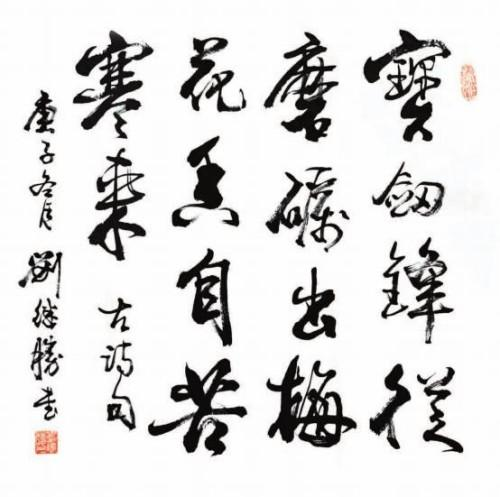 寶劔鋒從
磨礪出梅
花香自苦
寒來 古詩句
庚子冬月 劉继勝書